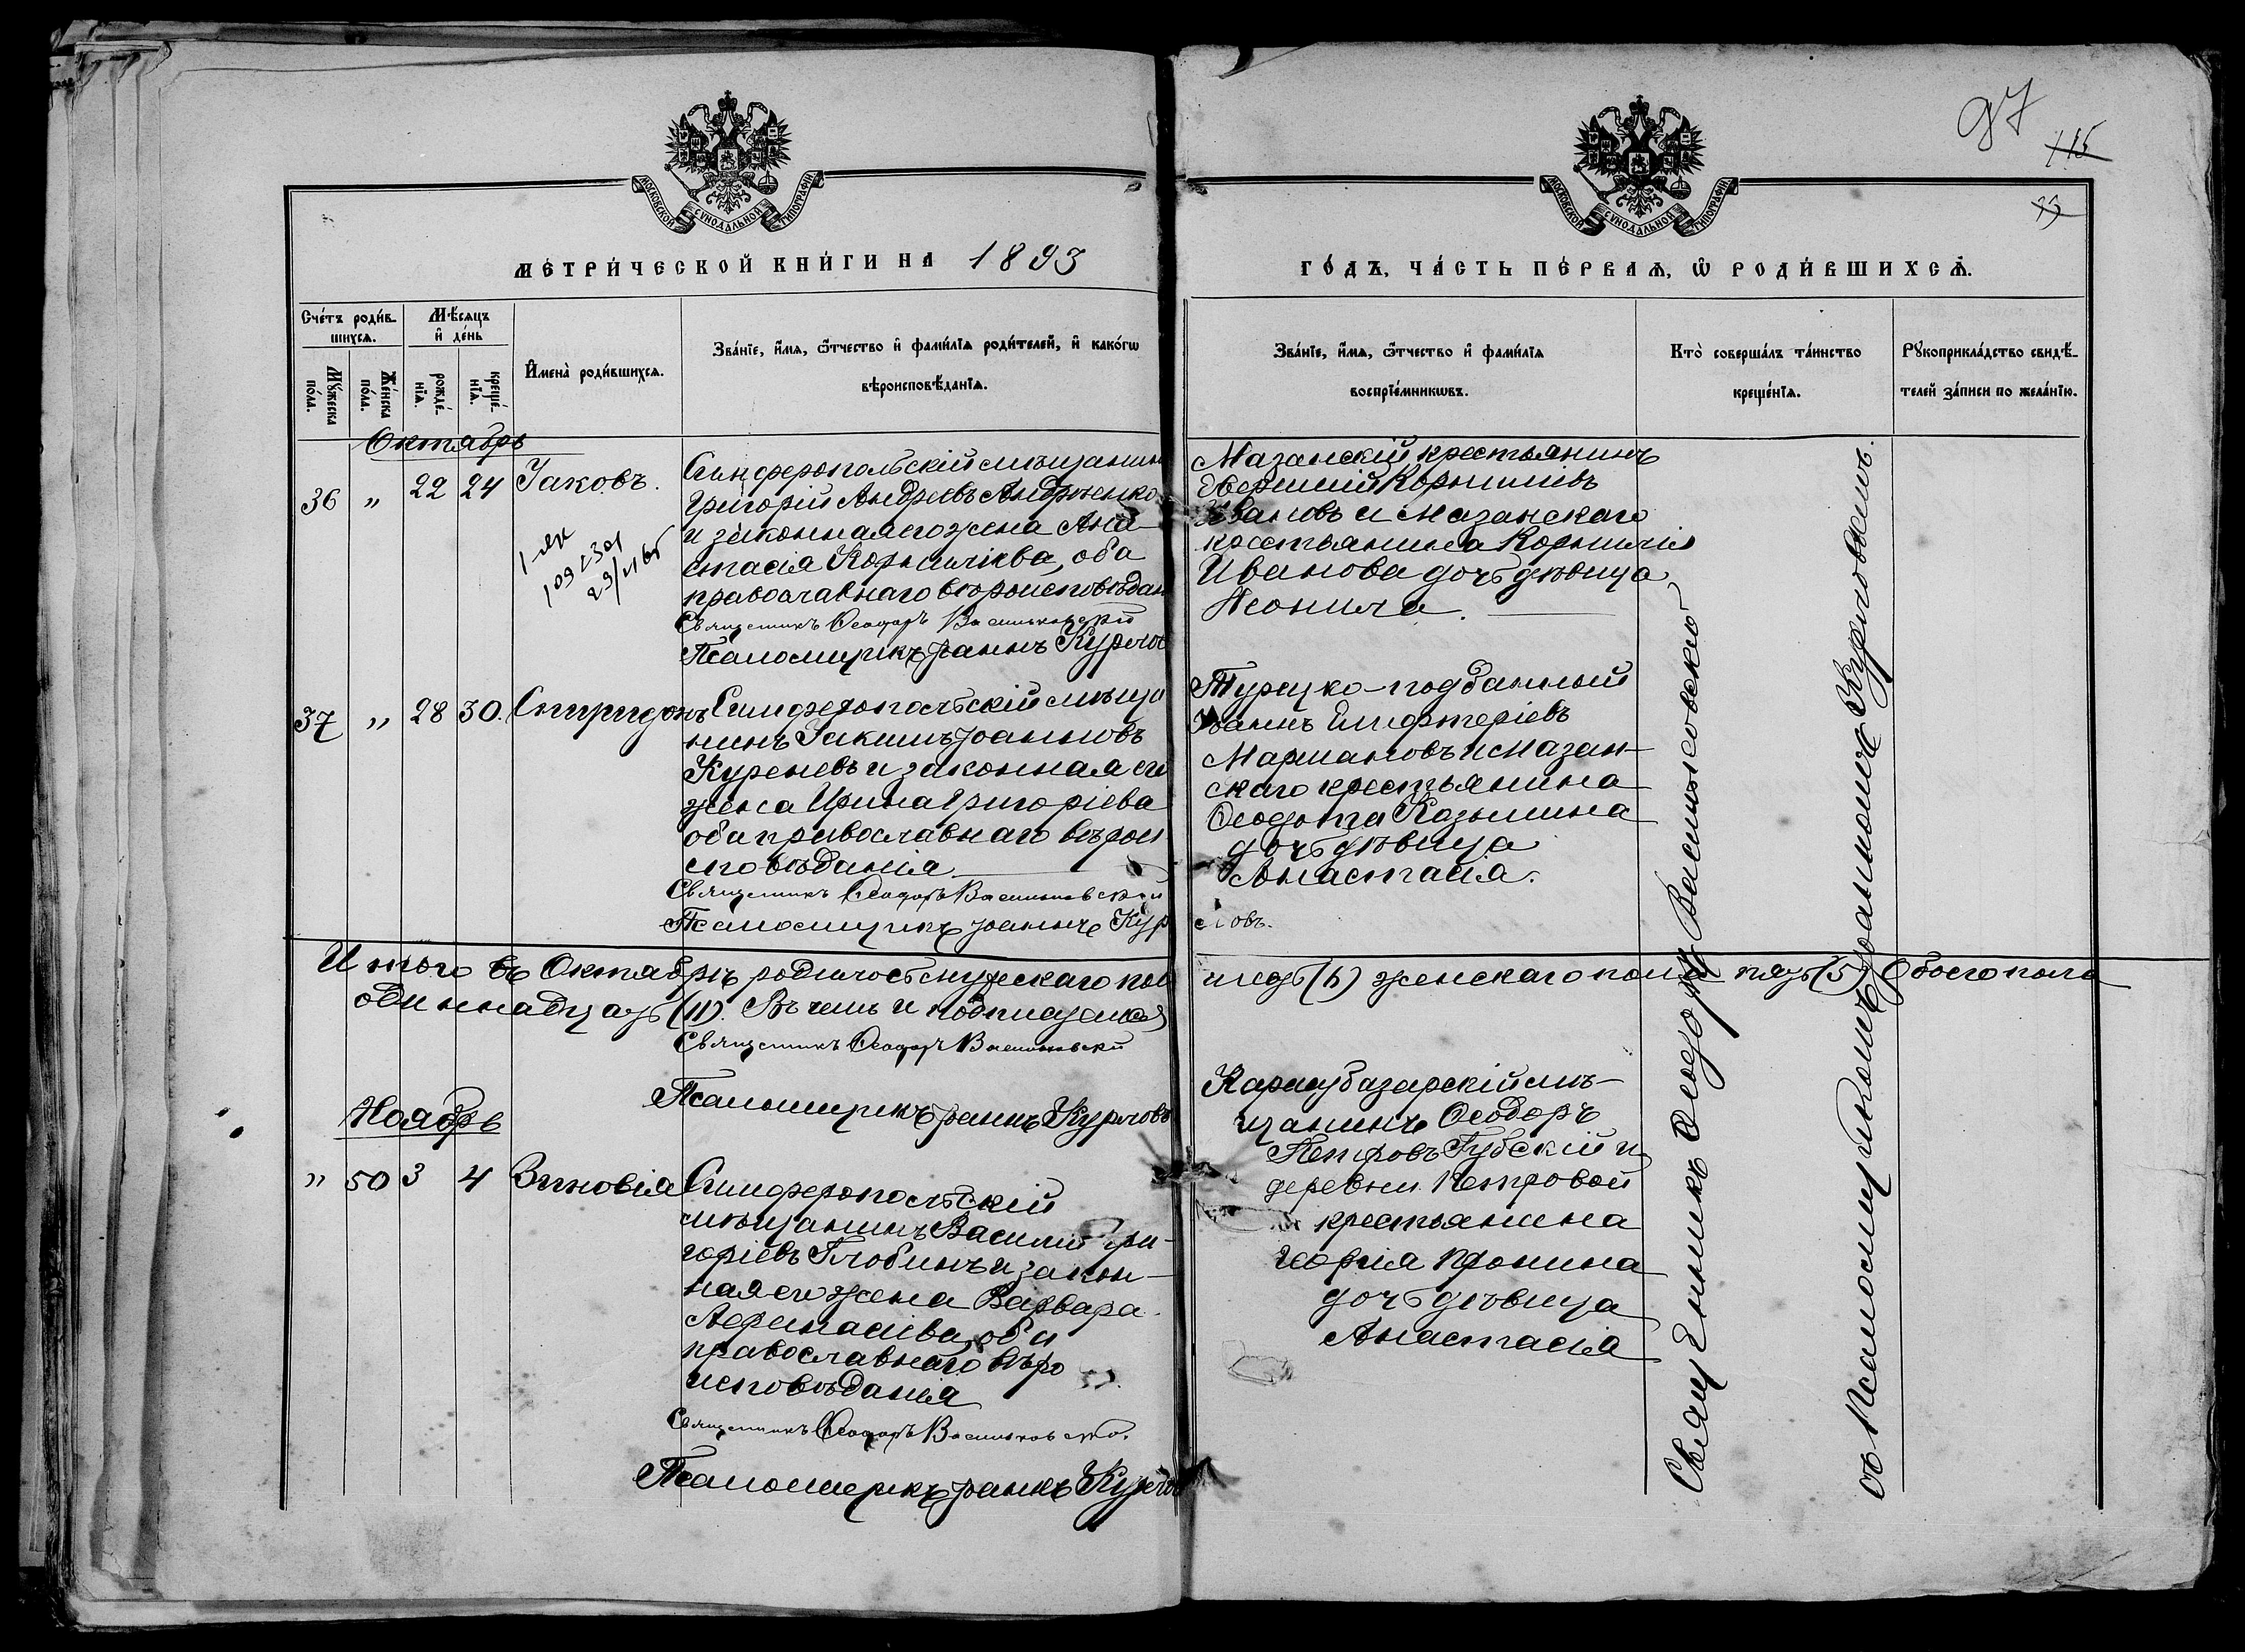 97
115
93
МОСКОВСКОЙ СѴНОДАЛЬНОЙ ТИПОГРАФІИ
МОСКОВСКОЙ СѴНОДАЛЬНОЙ ТИПОГРАФІИ
МЕТРИ́ЧЕСКОЙ КНИ́ГИ НА 1893
ГО́ДЪ, ЧА́СТЬ ПЕ́РВАѦ, Ѡ҆ РОДИ́ВШИХСѦ.
Сче́тъ роди́в-
шихсѧ.
Мѣ́сѧцъ
и҆ де́нь
Мꙋ́жеска
по́ла.
Же́нска
по́ла.
рожде́-
нїѧ.
креще́-
нїѧ.
И҆мена̀ роди́вшихсѧ.
Зва́нїе, и҆́мѧ, ѻ҆́тчество и҆ фами́лїѧ роди́телей, и҆ како́гѡ
вѣроисповѣ́данїѧ.
Зва́нїе, и҆́мѧ, ѻ҆́тчество и҆ фами́лїѧ
воспрїе́мникѡвъ.
Кто̀ соверша́лъ та́инство
креще́нїѧ.
Рꙋкоприкла́дство свидѣ́-
телей за́писи по жела́нїю.
Октябрь
36 " 22 24 Іаковъ.
Симферопольскій мѣщанин
Григорій Андреевъ Андрюенко
и законная его жена Ана-
стасія Корниліева, оба
православнаго вѣроисповѣдан
Священникъ Ѳеодоръ Васильковскій
Псаломщикъ Іоаннъ Курлов
Мазанскій крестьянинъ
Корниліевъ
Ивановъ и Мазанскаго
крестьянина Корнилія
Иванова дочь дѣвица
Неонила.
37 " 28 30. Спиридонъ
Симферопольскій мѣща
нинъ Іакимъ Іоанновъ
Куреневъ и законная его
жена Ирина Григоріева
оба православнаго вѣрои
сповѣданія.
Священникъ Ѳеодоръ Васильковскій
Псаломщикъ Іоаннъ Кур ловъ.
Турецко-подданный
Іоаннъ Елефтеріевъ
Мармановъ и Мазан-
скаго крестьянина
Ѳеодота Козьмина
дочь дѣвица
Анастасія.
Итого въ Октябрѣ родилось мужескаго пол шесть (6) женскаго пола пять (5) Обоего пола
одиннадцать (11). Въ чемъ и подписуемся
Священникъ Ѳеодоръ Васильковскій
Псаломщикъ Іоаннъ Курловъ
Ноябрь
" 50 3 4 Зиновія
Симферопольскій
мѣщанинъ Василій Гри-
горіевъ Глобинъ и закон-
ная его жена Варвара
Афанасіева, оба
православнаго вѣро
исповѣданія
Священникъ Ѳеодоръ Васильковскій.
Псаломщикъ Іоаннъ Курлов
Карасубазарскій мѣ-
щанинъ Ѳеодоръ
Петровъ Губскій и
деревни Петровой
крестьянина
Георгія Ѳронина
дочь дѣвица
Анастасія
Священникъ Ѳеодоръ Васильковскій
съ Псаломщикомъ Іоанномъ Курловымъ.